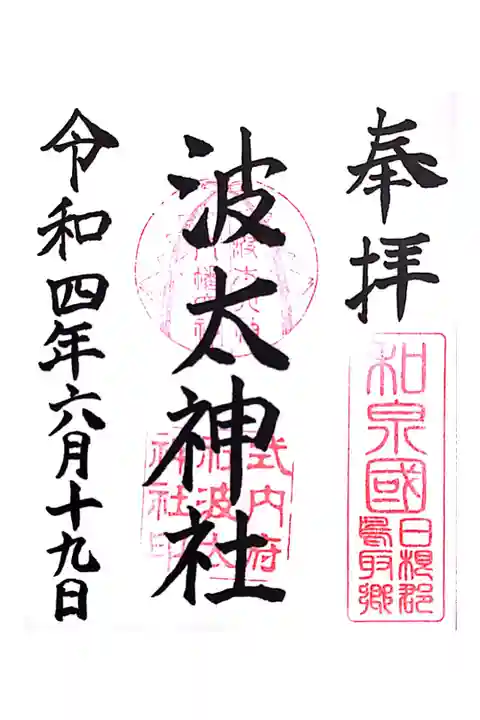 奉拝
和泉國
日根郡
鳥取郷
波太神社
式内府
社波太
神社印
令和四年六月十九日